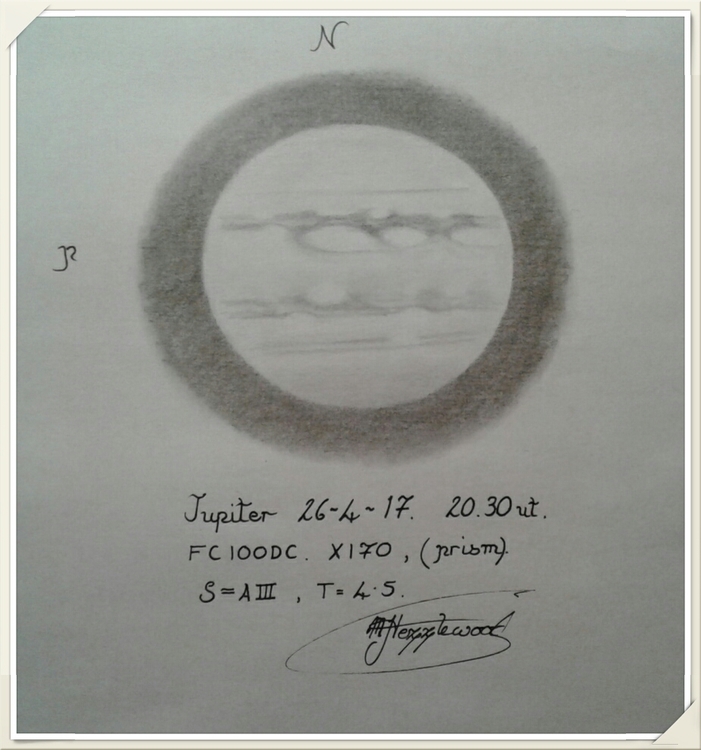 N
P
Jupiter 26-4-17. 20.30ut.
FC100DC. X170, (prism).
S=AIII, T=4.5.